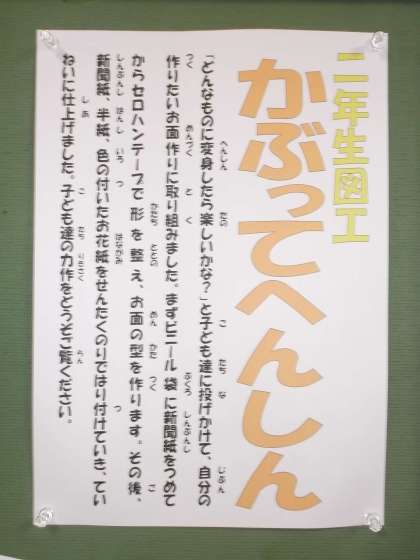 二年生図工
かぶってへんしん
「どんなものに変身したら楽しいかな？」と子ども達に投げかけて、自分の
作りたいお面作りに取り組みました。まずビニール袋に新聞紙をつめて
からセロハンテープで形を整え、お面の型を作ります。その後、
新聞紙、半紙、色の付いたお花紙をせんたくのりではり付けていき、てい
ねいに仕上げました。子ども達の力作をどうぞご覧ください。